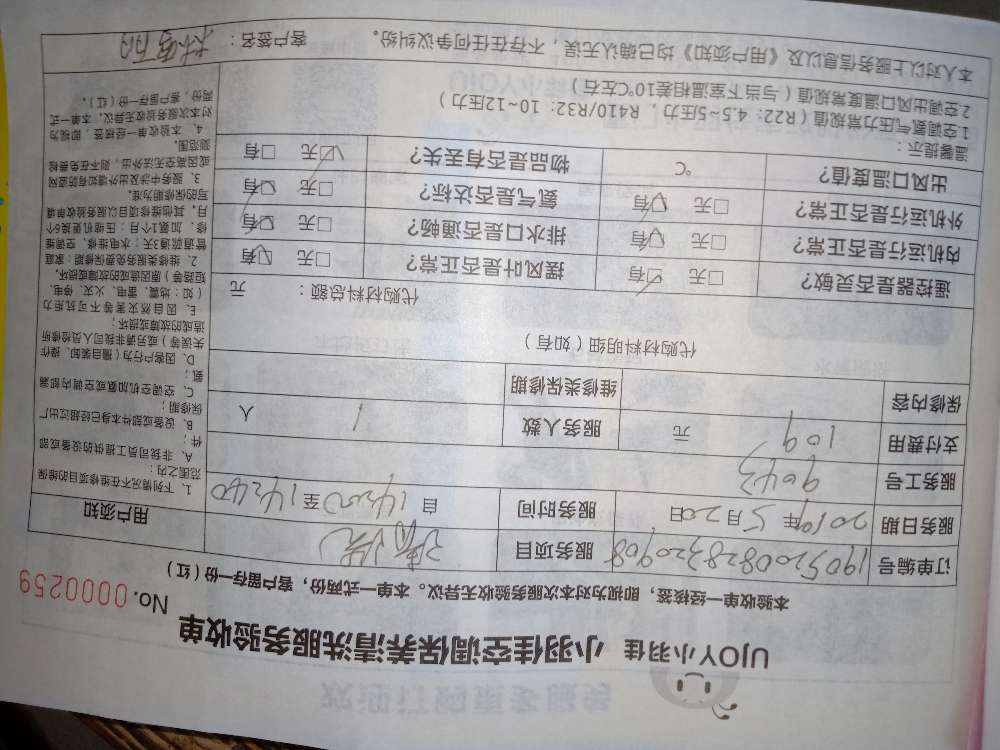 UJOY小羽佳 小羽佳空调保养清洗服务验收单
No. 0000259
本验收单一经核签，即视为对本次服务验收无异议。本单一式两份，客户留存一份（红）
订单编号 1905200828320908 服务项目 清洗
服务日期 2019年5月20日 服务时间 自 14:00 至 14:40
服务工号 9043
支付费用 109 元 服务人数 1 人
保修内容 维修类保修期
代购材料明细（如有）
代购材料总额： 元
遥控器是否灵敏？ □无 □有 摆风叶是否正常？ □无 □有
内机运行是否正常？ □无 □有 排水口是否通畅？ □无 □有
外机运行是否正常？ □无 □有 氨气是否达标？ □无 □有
出风口温度值？ ℃ 物品是否有丢失？ □无 □有
温馨提示：
1.空调氨气压力常规值（R22：4.5~5压力，R410/R32：10~12压力）
2.空调出风口温度常规值（与当下室温相差10℃左右）
本人对以上服务信息以及《用户须知》均已确认无误，不存在任何争议纠纷。 客户签名：
用户须知
1、下列情况不在维修项目的维保
范围之内：
A、非我司员工提供的设备或部
件；
B、设备或部件本身已经超过出厂
保修期；
C、空调空机加氨或空调内部漏
氨；
D、因客户行为（擅自装卸、操作
失误等）或另请非我司人员检修所
造成的故障或损坏；
E、因自然灾害等不可抗拒力
（如：地震、雷电、火灾、停电、
短路等）原因造成的故障或损坏。
2、维修类服务免费保修期：家庭
管道疏通3天；水电维修、空调维
修、加氨1个月；压缩机更换6个
月，其他维修项目以服务验收单填
写的保修期为准。
3、服务中涉及出外墙如有防盗网
或因高空无法外出，则不在免费检
测范围。
4、本验收单一经核签，即视为
对本次服务验收无异议，本单一式
两份，客户留存一份（红）。
欢迎订购更多服务